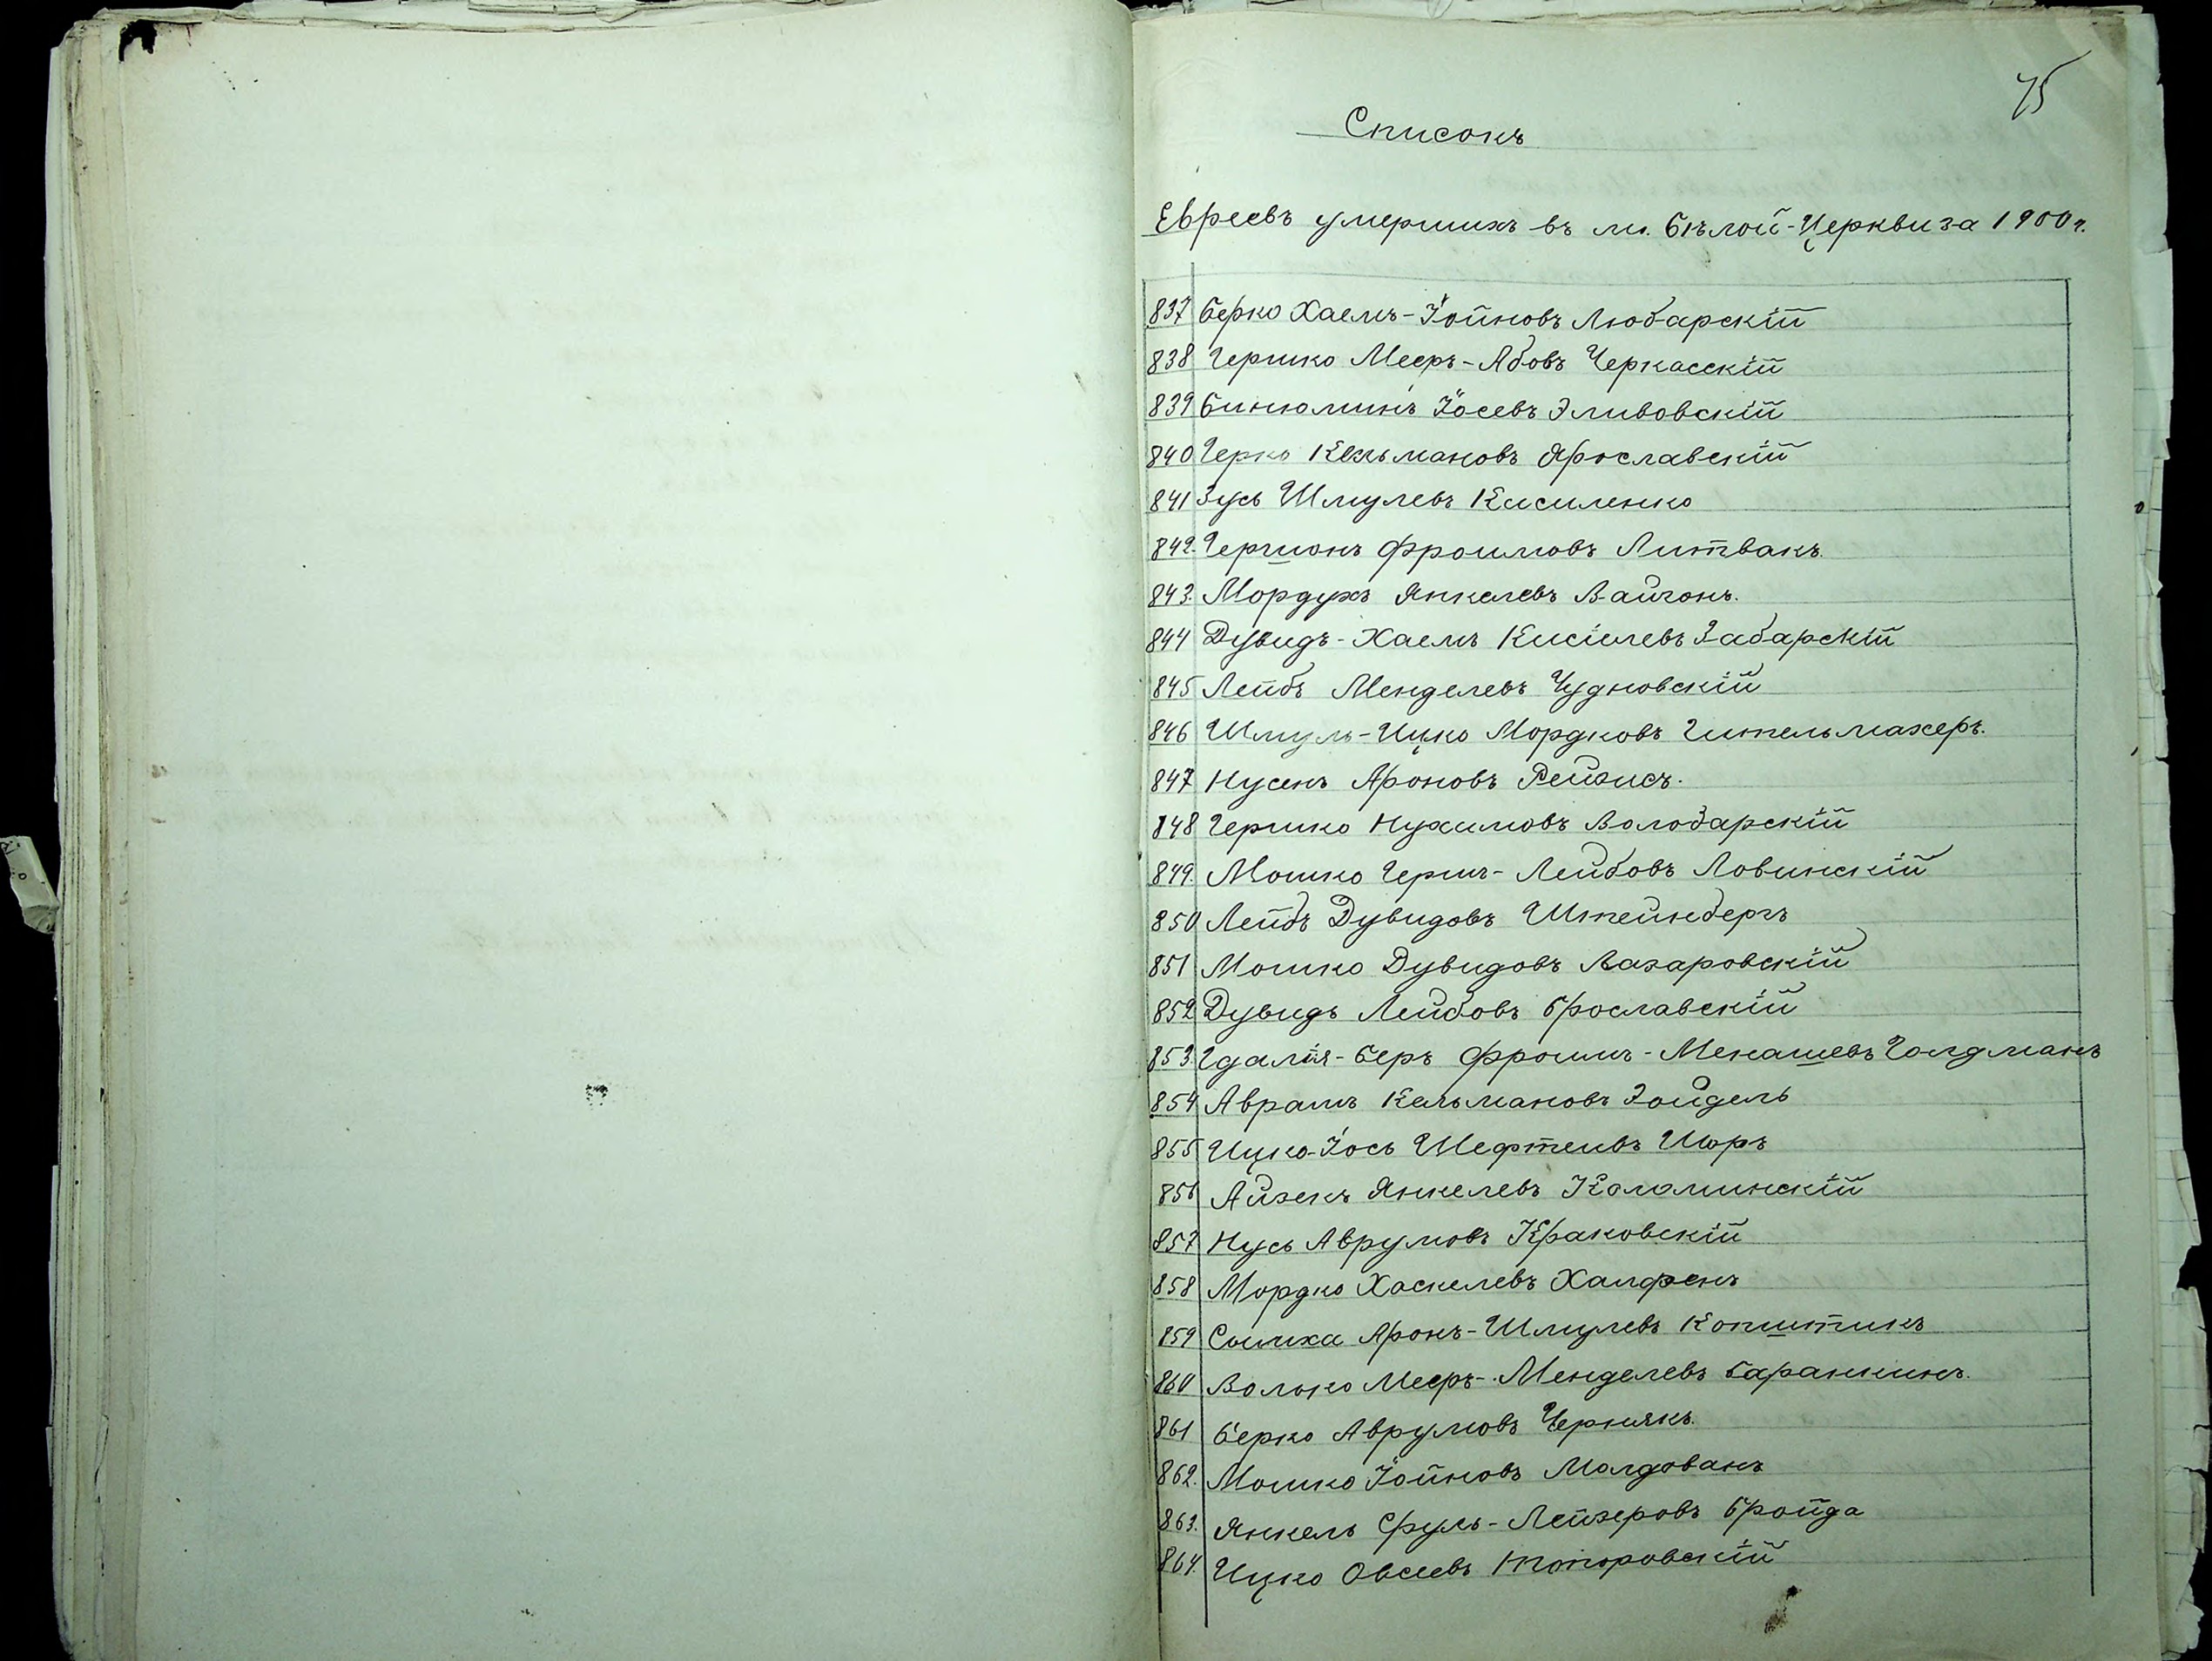 75
Списокъ
Евреевъ умершихъ въ м. Бѣлой-Церкви за 1900 г.
837 Берко Хаемъ-Іойновъ Любарскій
838 Гершко Мееръ-Абовъ Черкасскій
839 Бинюминъ Іосевъ Эливовскій
840 Герко Кельмановъ Ярославскій
841 Зусь Шмулевъ Кисиленко
842. Гершонъ Фроимовъ Литвакъ.
843. Мордухъ Янкелевъ Вайгонъ.
844 Дувидъ-Хаемъ Кисіилевъ Забарскій
845 Лейбъ Менделевъ Чудновскій
846 Шмуль-Ицко Мордковъ Гительмахеръ.
847 Нусенъ Ароновъ Рейзисъ.
848 Гершко Нухимовъ Володарскій
849. Мошко Гершъ-Лейбовъ Ловинскій
850 Лейбъ Дувидовъ Штейнбергъ
851 Мошко Дувидовъ Вазаровскій
852 Дувидъ Лейбовъ Брославскій
853. Гдалія-Беръ Фроимъ-Менашевъ Голдманъ
854 Аврамъ Кельмановъ Зойдель
855 Ицко-Іось Шефтеивъ Шоръ
856 Айзекъ Янкелевъ Коломинскій
857 Нусь Аврумовъ Краковскій
858 Мордко Хаскелевъ Халфенъ
859 Симха Аронъ-Шмулевъ Копштикъ
860 Волько Мееръ-Менделевъ Баранкинъ.
861 Берко Аврумовъ Чернякъ.
862. Мошко Іойновъ Молдованъ
863. Янкель Сруль-Лейзеровъ Бройда
864. Ицко Овсеевъ Топоровскій